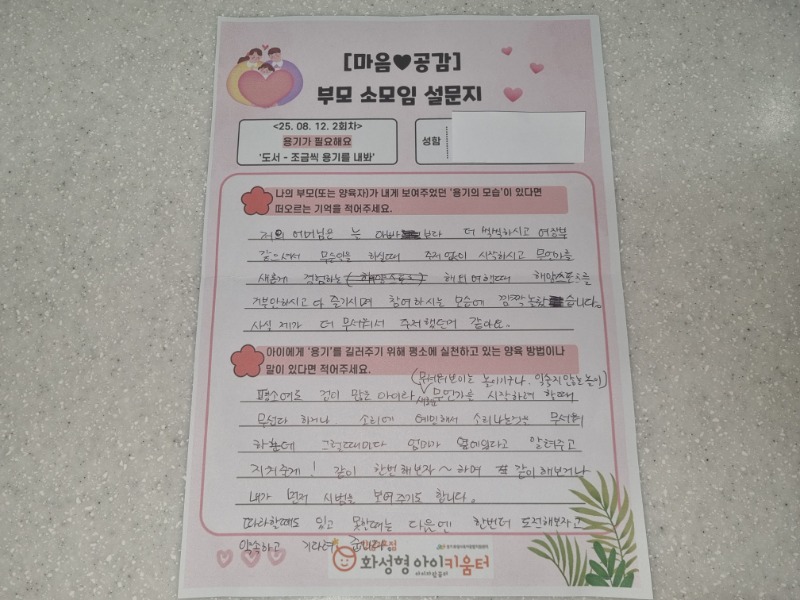 [마음♥공감]
부모 소모임 설문지
<25. 08. 12. 2회차>
용기가 필요해요
'도서 - 조금씩 용기를 내봐'
성함
나의 부모(또는 양육자)가 내게 보여주었던 '용기의 모습'이 있다면
떠오르는 기억을 적어주세요.
저희 어머님은 늘 아빠보다 더 씩씩하시고 여장부
같으셔서 무슨일을 하실때 주저 없이 시작하시고 무언가를
새롭게 경험하는 해외여행때 해양스포츠를
거부안하시고 다 즐기시며 참여하시는 모습에 깜짝 놀랐습니다.
사실 제가 더 무서워서 주저했던거 같아요..
아이에게 '용기'를 길러주기 위해 평소에 실천하고 있는 양육 방법이나
말이 있다면 적어주세요.
(무서워보이는 놀이기구나, 익숙지 않는 놀이)
평소에도 겁이 많은 아이라 새로운 무언가를 시작하려 할때
무섭다 하거나 소리에 예민해서 소리나는것을 무서워
하는데 그럴때마다 엄마가 옆에있다고 알려주고
지켜줄게! 같이 한번 해보자~ 하며 같이 해보거나
내가 먼저 시범을 보여주기도 합니다.
따라할때도 있고 못할때는 다음엔 한번더 도전해보자고
약속하고 기다려 줍니다.
화성형 아이키움터